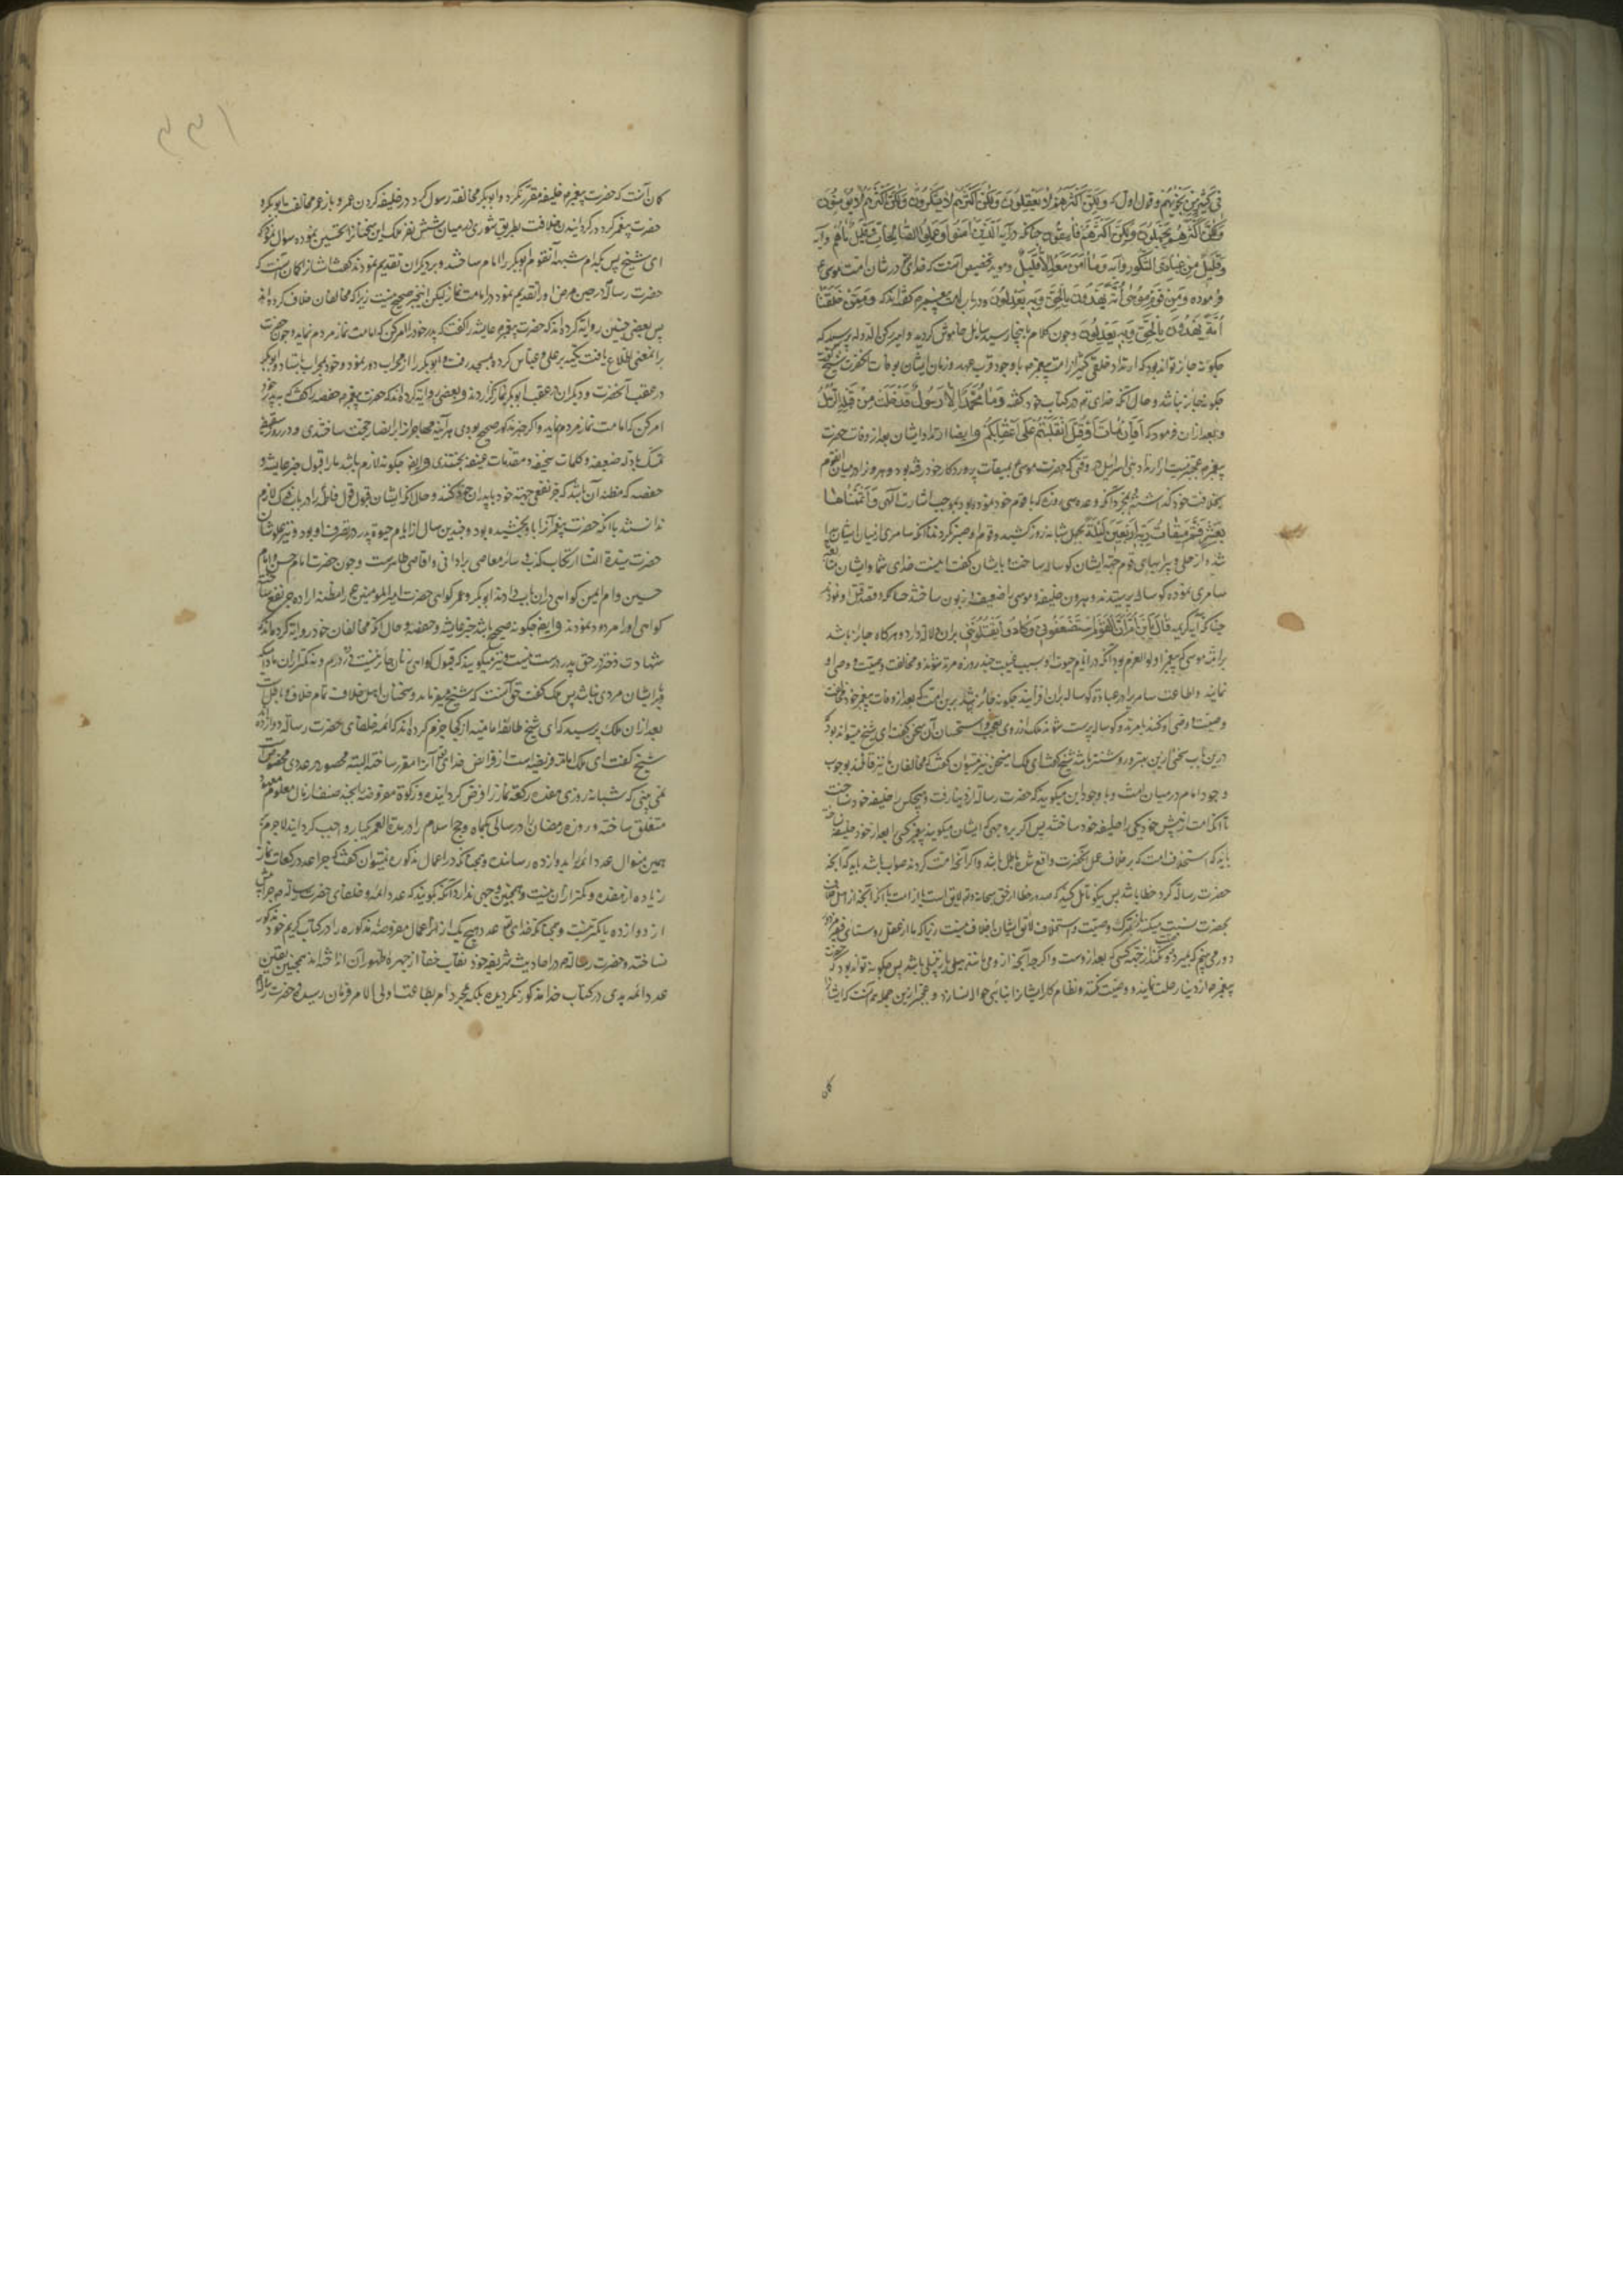 فی کثیر من نجویهم و قول اول که ولکن اکثرهم لا یعقلون ولکن اکثرهم لا یشکرون ولکن اکثرهم لا یؤمنون
ولکن اکثرهم یجهلون ولکن اکثرهم فاسقون چنانکه در آیه الا الذین امنوا وعملوا الصالحات وقلیل ما هم و آیه
وقلیل من عبادی الشکور و آیه وما امن معه الا قلیل و موید تخصیص آنست که خدای تع در شان امت موسی ع
فرموده ومن قوم موسی امة یهدون بالحق وبه یعدلون و در باب امت پیغمبر م گفته اند که وممن خلقنا
امة یهدون بالحق وبه یعدلون و چون کلام باینجا رسید سایل خاموش گردید و امیر رکن الدوله پرسید که
چگونه جائز تواند بود که ارتداد خلقی کثیر از امت پیغمبر ص با وجود قرب عهد و زمان ایشان بوفات آنحضرت شیخ گفت
چگونه جایز نباشد و حال آنکه خدای تع در کتاب خود گفته وما محمد الا رسول قد خلت من قبله الرسل
و بعد از ان فرمود که افان مات او قتل انقلبتم علی اعقابکم و ایضا ارتداد ایشان بعد از وفات حضرت
پیغمبر م عجبتر نیست از ارتداد بنی اسرائیل در وقتی که حضرت موسی ع بمیقات پروردگار خود رفته بود و هرون را در میان القوم
بخلافت خود گذاشته بمجرد آنکه وعده سی روزه که با قوم خود نموده بود بموجب اشارت الهی واتممناها
بعشر فتم میقات ربه اربعین لیلة بچهل شبانه روز کشید و قوم او صبر نکردند تا آنکه سامری از میان ایشان پیدا
شد و از حلی و پیرایهای قوم جهة ایشان گوساله ساخت و بایشان گفت اینست خدای شما و ایشان متابعة
سامری نموده گوساله پرستیدند و هرون خلیفه موسی را ضعیف و زبون ساختند چنانکه قصد قتل او نمودند
چنانکه آیه کریمه قال یابن ام ان القوم استضعفونی وکادوا یقتلوننی بران دلالة دارد و هرگاه جایز باشد
بر امت موسی که پیغمبر اولو العزم بود آنکه در ایام حیوة او بسبب غیبت چند روزه مرتد شوند و مخالفت وصیت و وصی او
نمایند و اطاعت سامری در عبادة گوساله بران افزایند چگونه جائز نباشد برین امت که بعد از وفات پیغمبر خود مخالفت
وصیت و وصی او کنند
درین باب سخنی ازین بهتر و روشنتر باشد شیخ گفت ای ملک این سخن نیز میتوان گفت که مخالفان ما نیز قائلند بوجوب
وجود امام در میان امت و با وجود این میگویند که حضرت رسالة از دنیا رفت و هیچکس را خلیفه خود نساخت
تا آنکه امت از پیش خود یکی را خلیفه خود ساختند پس اگر بر وجهی که ایشان میگویند پیغمبر کسی را بعد از خود خلیفه نساخته
باید که استخلاف امت که بر خلاف عمل آنحضرت واقع شده باطل باشد و اگر آنچه امت کردند صواب باشد باید که آنچه
حضرت رسالة کرد خطا باشد پس بگو تأمل کنید که صدور خطا از حق
بحضرت نسبت میکنند از ترک وصیت و استخلاف لایق ایشان
دور می بینم که بمیرد و نگذارد جهة کسی که بعد از وست
پیغمبر ص از دنیا رحلت نماید و وصیت نکند و نظام کار ایشان را بنائبی حواله نسازد و عجبتر ازین جمله همه آنست که ایشان
کان
۳۳۱
کان آنست که حضرت پیغمبر م خلیفه مقرر نکرد و ابوبکر مخالفة رسول کرد در خلیفه کردن عمر و باز عمر مخالفت ابوبکر و
حضرت پیغمبر کرد در گردانیدن خلافت بطریق شوری در میان شش نفر ملک این سخنانرا تحسین نموده سوال نمود که
ای شیخ پس بکدام شبهه آنقوم ابوبکر را امام ساختند و بر دیگران تقدیم نمودند گفت
حضرت رسالة در حین مرض او را تقدیم نمود در امامت نماز لیکن این خبر صحیح نیست زیرا که مخالفان خلاف کرده اند
پس بعضی چنین روایة کرده اند که حضرت پیغمبر م عایشه را گفت که پدر خود را امر کن که امامت نماز مردم نماید و چون حضرت
برینمعنی اطلاع یافت تکیه بر علی و عباس کرد و بمسجد رفت و ابوبکر را از محراب دور نمود و خود بمحراب بایستاد و ابوبکر
در عقب آنحضرت و دیگران در عقب ابوبکر نماز گزاردند و بعضی روایة کرده اند که حضرت پیغمبر م حفصه را گفت که پدر خود
امر کن که امامت نماز مردم نماید و اگر خبر مذکور صحیح بودی هر آینه مهاجر انرا بر انصار حجت ساختندی و در روز سقیفه
تمسک بادله ضعیفه و کلمات سخیفه و مقدمات عنیفه نجستندی و ایضا چگونه لازم باشد ما را قبول خبر عایشه و
حفصه که مظنه آن باشد که جر نفعی جهة خود یا پدران خود کنند و حال آنکه ایشان قبول قول فاطمه را در باب فدک لازم
ندانستند با آنکه حضرت پیغمبر آنرا باو بخشیده بود و چندین سال از ایام حیوة پدر در تصرف او بود و نیز علو شان
حضرت سیدة النساء از ارتکاب کذب و سائر معاصی بر ادانی و اقاصی ظاهرست و چون حضرت امام حسن و امام
حسین و ام ایمن گواهی دران باب دادند ابوبکر و عمر گواهی حضرت امیر المومنین ع را مظنه اراده جر نفع ساخته
گواهی او را مردود نمودند و ایضا چگونه صحیح باشد خبر عایشه و حفصه و حال آنکه مخالفان خود روایة کرده اند که
شهادت دختر در حق پدر درست نیست و نیز میگویند که قبول گواهی زنان جایز نیست در ده درم و نه کمتر از ان مادام که
با ایشان مردی نباشد پس ملک گفت حق آنست که شیخ میفرماید و سخنان اهل خلاف تمام خلاف و باطل است
بعد از ان ملک پرسید که ای شیخ طائفه امامیه از کجا جزم کرده اند که ائمه خلفای حضرت رسالة دوازده
شیخ گفت ای ملک امامة فریضه است از فرائض خدای تع و آنچه آنرا مقرر ساخته البته محصور در عددی مخصوص است
نمی بینی که شبانه روزی هفده رکعة نماز را فرض گردانیده و زکوة مفروضه بچند صنف از مال معلوم معین
متعلق ساخته و روزه رمضان را در سالی یکماه و حج اسلام را در مدة العمر یکبار واجب گردانیده لاجرم
همین منوال عدد ائمه را بدوازده رسانده و همچنانکه در اعمال مذکوره نمیتوان گفت که چرا عدد رکعات نماز
زیاده از هفده و کمتر از ان نیست و همچنین وجهی ندارد آنکه گویند که عدد ائمه و خلفای حضرت رسالة م چرا بیش
از دوازده یا کمتر نیست و همچنانکه خدای تع عدد هیچ یک از این اعمال مفروضه مذکوره را در کتاب کریم خود مذکور
نساخته و حضرت رسالة م در احادیث شریفه خود نقاب خفا از چهره ظهور آن انداخته اند همچنین تعیین
عدد ائمه هدی در کتاب خدا مذکور نگردیده بلکه بمجرد امر بطاعت اولی الامر فرمان رسیده و حضرت رسالة